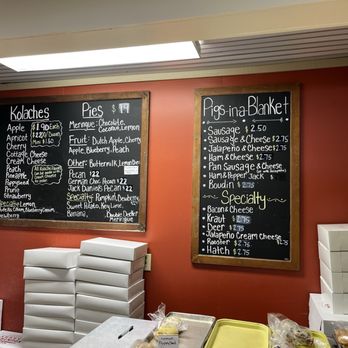 Kolaches
Apple
Apricot
Cherry
Cottage Cheese
Cream Cheese
Peach
Pineapple
Poppyseed
Prune
Strawberry
Specialty: Lemon
$1.90 Each
Mini $1.50
Pies $19
Meringue: Chocolate,
Coconut, Lemon
Fruit: Dutch Apple, Cherry
Apple, Blueberry, Peach
Other: Buttermilk,
Pecan $22
German Choc Pecan $22
Jack Daniels Pecan $22
Specialty: Pumpkin, Blueberry
Sweet Potato, Key Lime,
Banana, Double Dutch
Meringue
Pigs-in-a-Blanket
Sausage $2.50
Sausage & Cheese $2.75
Jalapeño & Cheese $2.75
Ham & Cheese $2.75
Pan Sausage & Cheese $2.75
Ham & Pepper Jack
Boudin $2.75
Specialty
Bacon & Cheese
Kraut $2.75
Deer $2.75
Jalapeño Cream Cheese
Rooster $2.75
Hatch $2.75